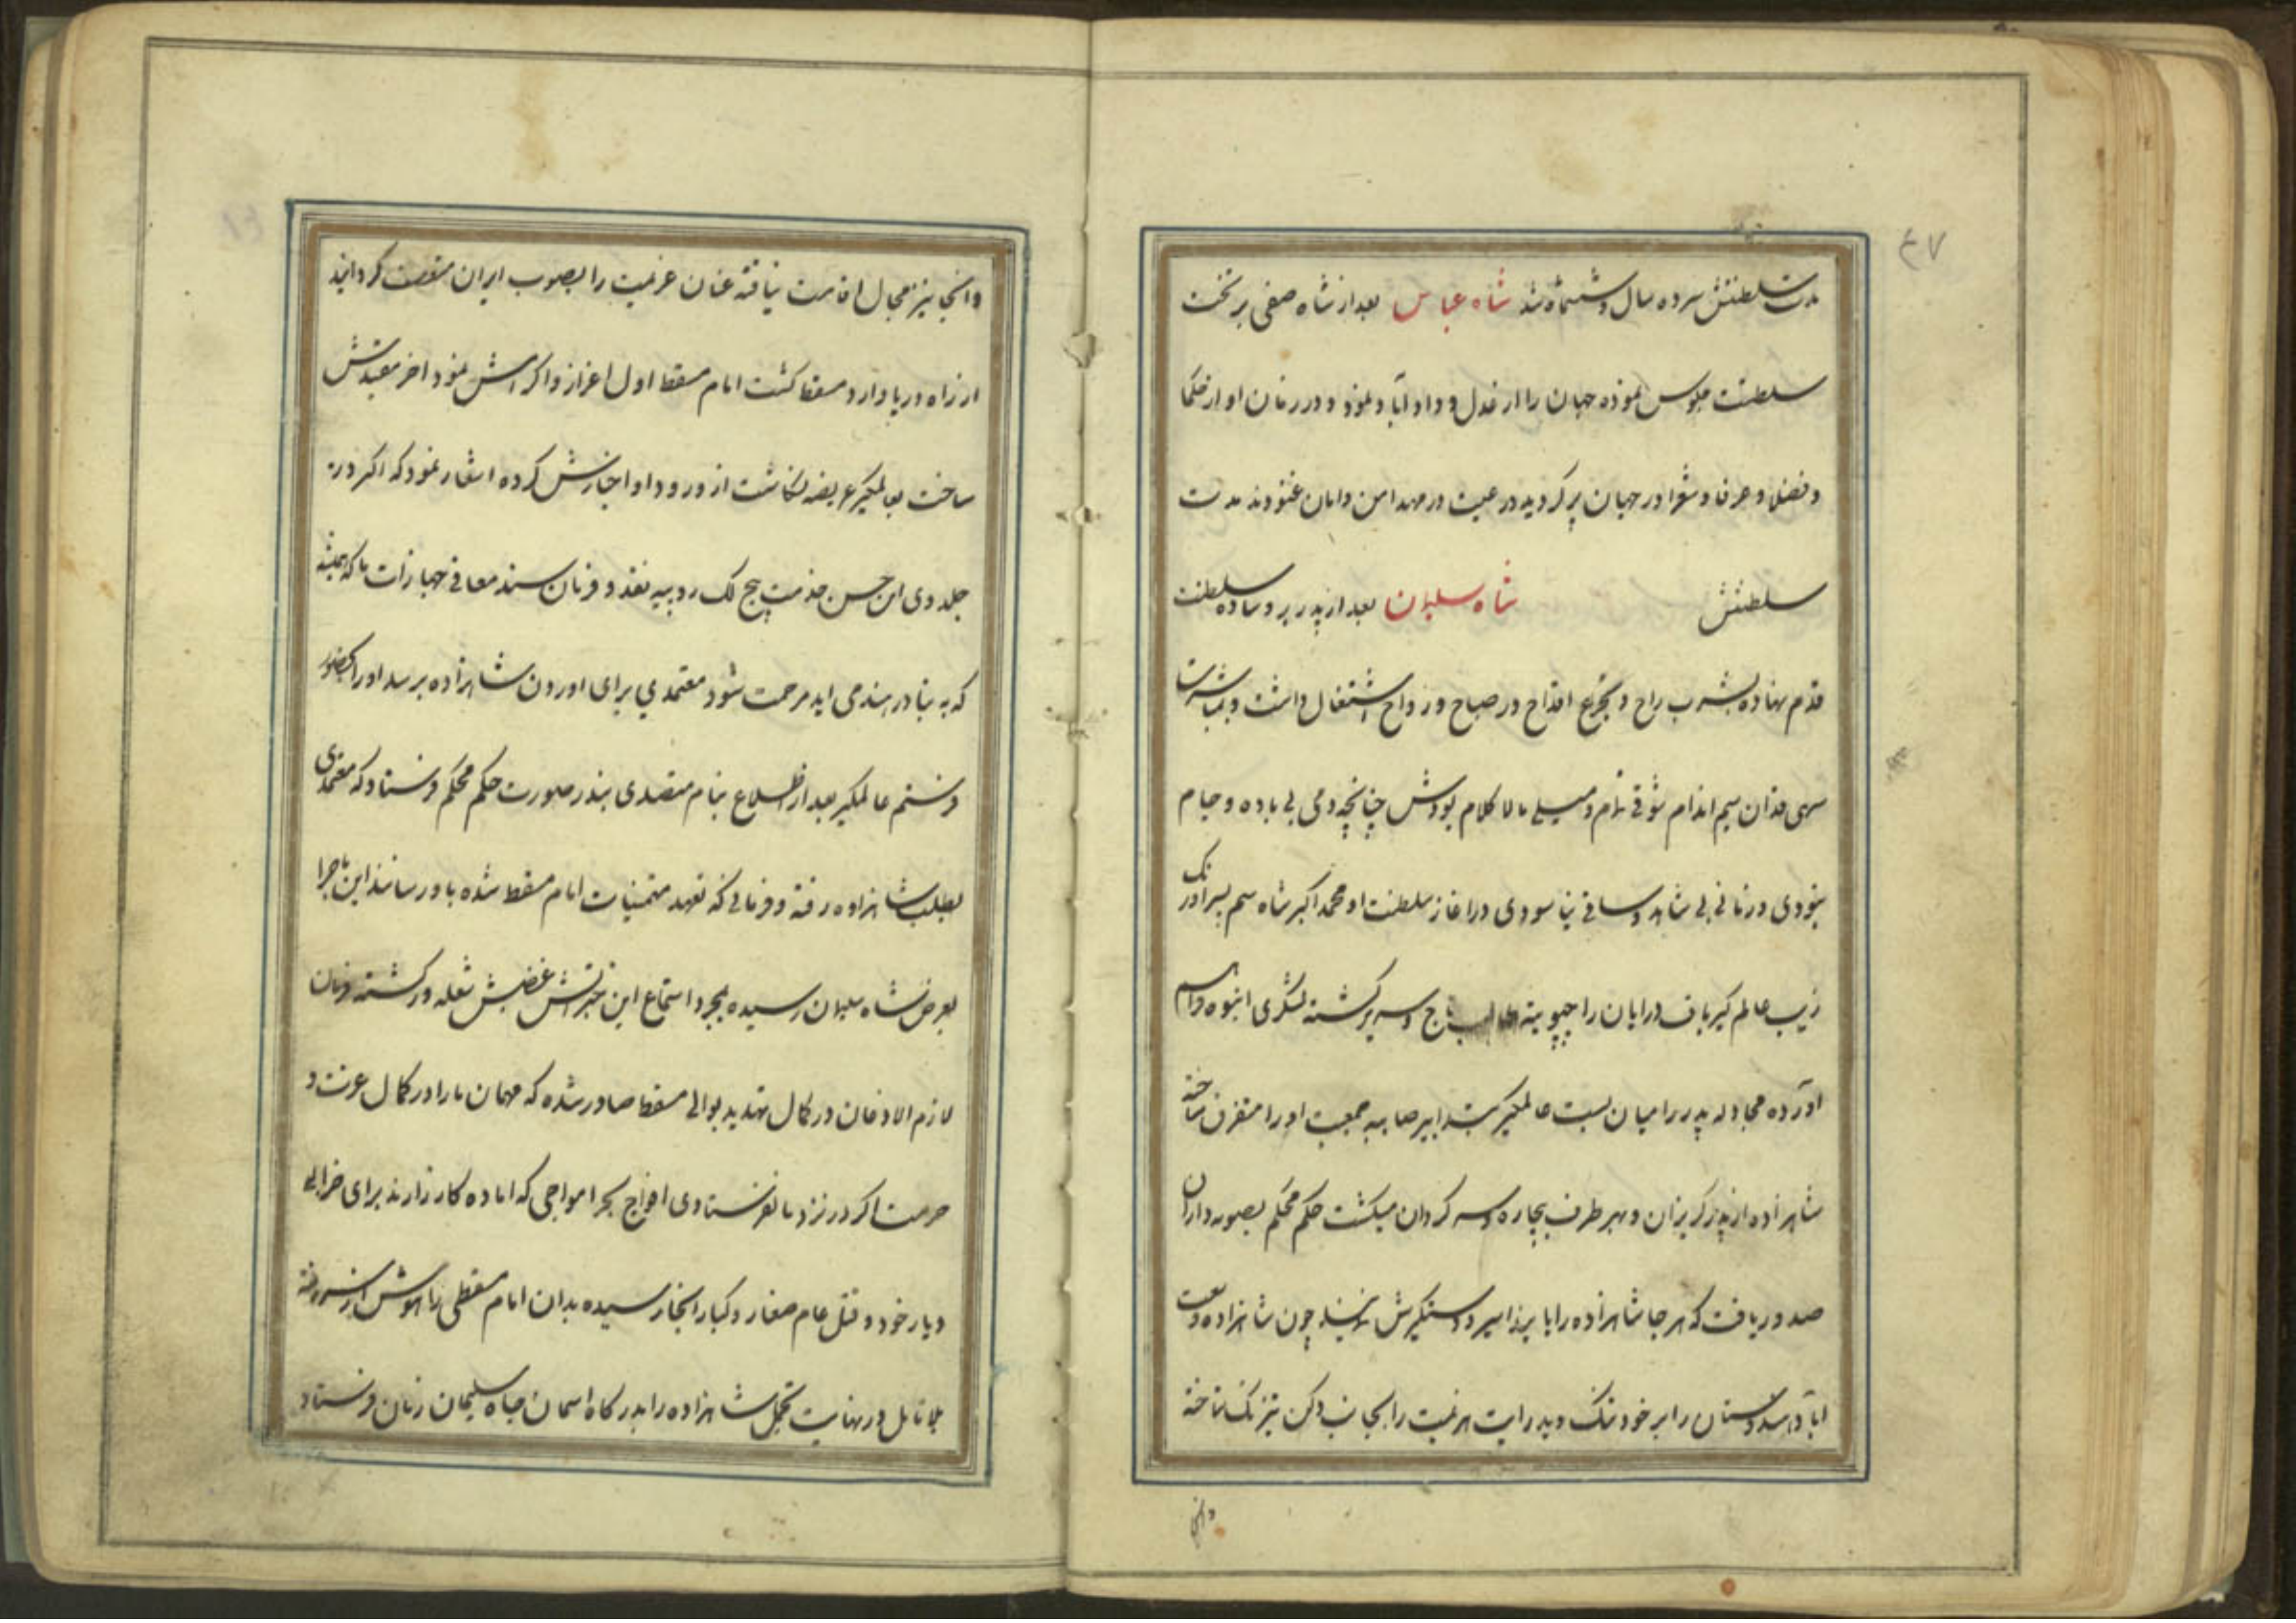 ۴۷
مدت سلطنتش سیرده سال و ششماه شد شاه عباس بعد از شاه صفی بر تخت
سلطنت جلوس نموده جهان را از عدل و داد آباد نمود و در زمان او از حکما
و فضلا و عرفا و شعرا در جهان پر کردید رعیت در مهد امن و امان غنودند مدت
سلطنتش شاه سلیمان بعد از پدر بر وساده سلطنت
قدم نهاده بشرب راح و تجرع اقداح در صباح و رواح اشتغال داشت و بمباشرت
سهی قدان سیم اندام شوقی تمام و میلی مالا کلام بودش چنانچه دمی بی باده و جام
نبودی و زمانی بی شاهد و ساقی نیاسودی در اغاز سلطنت او محمد اکبر شاه سیم پسر اورنک
زیب عالم کیر باف درایان راجپوتیه طالب تاج و سریر کشته لشکری انبوه فراهم
اورده مجادله پدر را میان بست عالمکیر بتدابیر صایبه جمعیت او را متفرق ساخته
شاهزاده از پدر کریزان و بهر طرف بیچاره و سر کردان میکشت حکم محکم بصوبه داران
صدور یافت که هر جا شاهزاده را یابند اسیر و دستکیرش نمایند چون شاهزاده وسعت
اباد هندوستان را بر خود تنک دید رایت عزیمت را بجانب دکن تیز تک تاخته
وانجا
وانجا نیز مجال اقامت نیافته عنان عزیمت را بصوب ایران منعطف کردانید
از راه دریا وارد مسقط کشت امام مسقط اول اعزاز و اکرامش نمود اخر مقیدش
ساخت بعالمکیر عریضه نکاشت از ورود او اخبارش کرده اشعار نمود که اکر در
جلدوی این حسن خدمت پنج لک روپیه نقد و فرمان سند معافی جهازات ما که همیشه
که به بنادر هند می اید مرحمت شود معتمدی برای اوردن شاهزاده برسد او را بحضور
فرستم عالمکیر بعد از اطلاع بنام متصدی بندر صورت حکم محکم فرستاد که معتمدی
بطلب شاهزاده رفته و فرمانی که تعهد متمنیات امام مسقط شده باو رسانند این ماجرا
بعرض شاه سلیمان رسیده بمجرد استماع این خبر اتش غضبش شعله ور کشته فرمان
لازم الاذعان در کمال تهدید بوالی مسقط صادر شده که مهمان ما را در کمال عزت و
حرمت اکر در نزد ما نفرستادی افواج بحر امواجی که اماده کارزارند برای خرابی
دیار خود و قتل عام صغار و کبار انجا رسیده بدان امام مسقطی را هوش از سر رفته
بلا تامل در نهایت تجمل شاهزاده را بدرکاه اسمان جاه سلیمان زمان فرستاد